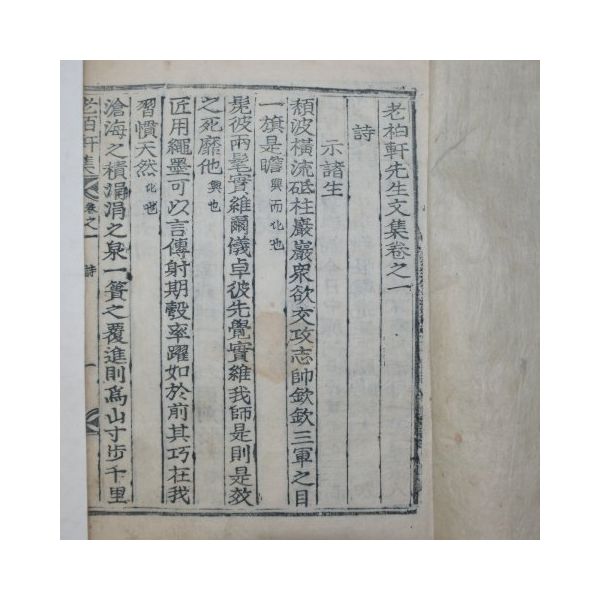 老柏軒先生文集卷之一
詩
示諸生
頹波橫流砥柱巖巖衆欲交攻志帥欽欽三軍之目
一旗是瞻興而化也
髧彼兩髦實維爾儀卓彼先覺實維我師是則是效
之死靡他興也
匠用繩墨可以言傳射期彀率躍如於前其巧在我
習慣天然化也
滄海之積涓涓之泉一簣之覆進則爲山寸步千里
老栢軒集 卷之一 詩 一